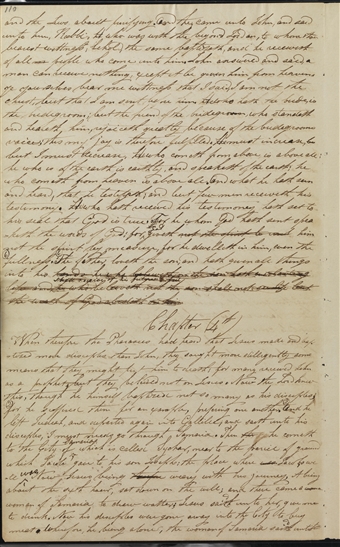 110
and the Jews about purifying, and they came unto John, and said
unto him, Rabbi, he who was with thee beyond Jordan, to whom thou
bearest witness, behold the same baptizeth, and he receiveth
of all people who come unto him. John answered and said a
man can receive nothing, except it be given him from heaven.
ye yourselves bear me witness that I said, I am not the
Christ, but that I am sent before him. He who hath the bride is
the bridegroom; but the friend of the bridegroom, who standeth
and heareth him, rejoiceth greatly because of the bridegroom's
voice; this my joy is therefore fulfilled. He must increase,
but I must decrease. He who cometh from above is above all:
he who is of the earth is earthly, and speaketh of the earth; he
who cometh from heaven is above all, and what he hath seen
and heard, that he testifyeth; and but few men receiveth his
testimony. He who hath received his testimony hath set to
his seal that God is true; for he whom God hath sent speak
eth the words of God: for God giveth him
not the spirit by measure, for he dwelleth in him, even the
fullness. The father loveth the son, and hath given all things
into his
the wrath of God
Chapter 4th
When therefore the Pharisees had heard that Jesus made and bap
tized more disciples than John, they sought more dilligently some
means that they might put him to death; for many received John
as a prophet, but they believed not on Jesus. Now the Lord knew
this, though he himself baptized not so many as his disciples;
For he suffered them for an example, prefering one another. And he
left Judeah, and departed again into Gallilee, and said unto his
disciples, I must needs go through Samaria. Then he cometh
to the City of Samaria which is called Sychar, near to the parcel of ground
which Jacob gave to his son Joseph; the place where Jacob's well
was. Now Jesus, being weary with the journey, it being
about the sixth hour, sat down on the well; and there came a
woman of Samaria to draw watter; Jesus said unto her, give me
to drink. Now his disciples was gone away into the City to buy
meat. Wherefore he being alone, the woman of Samaria saith unto